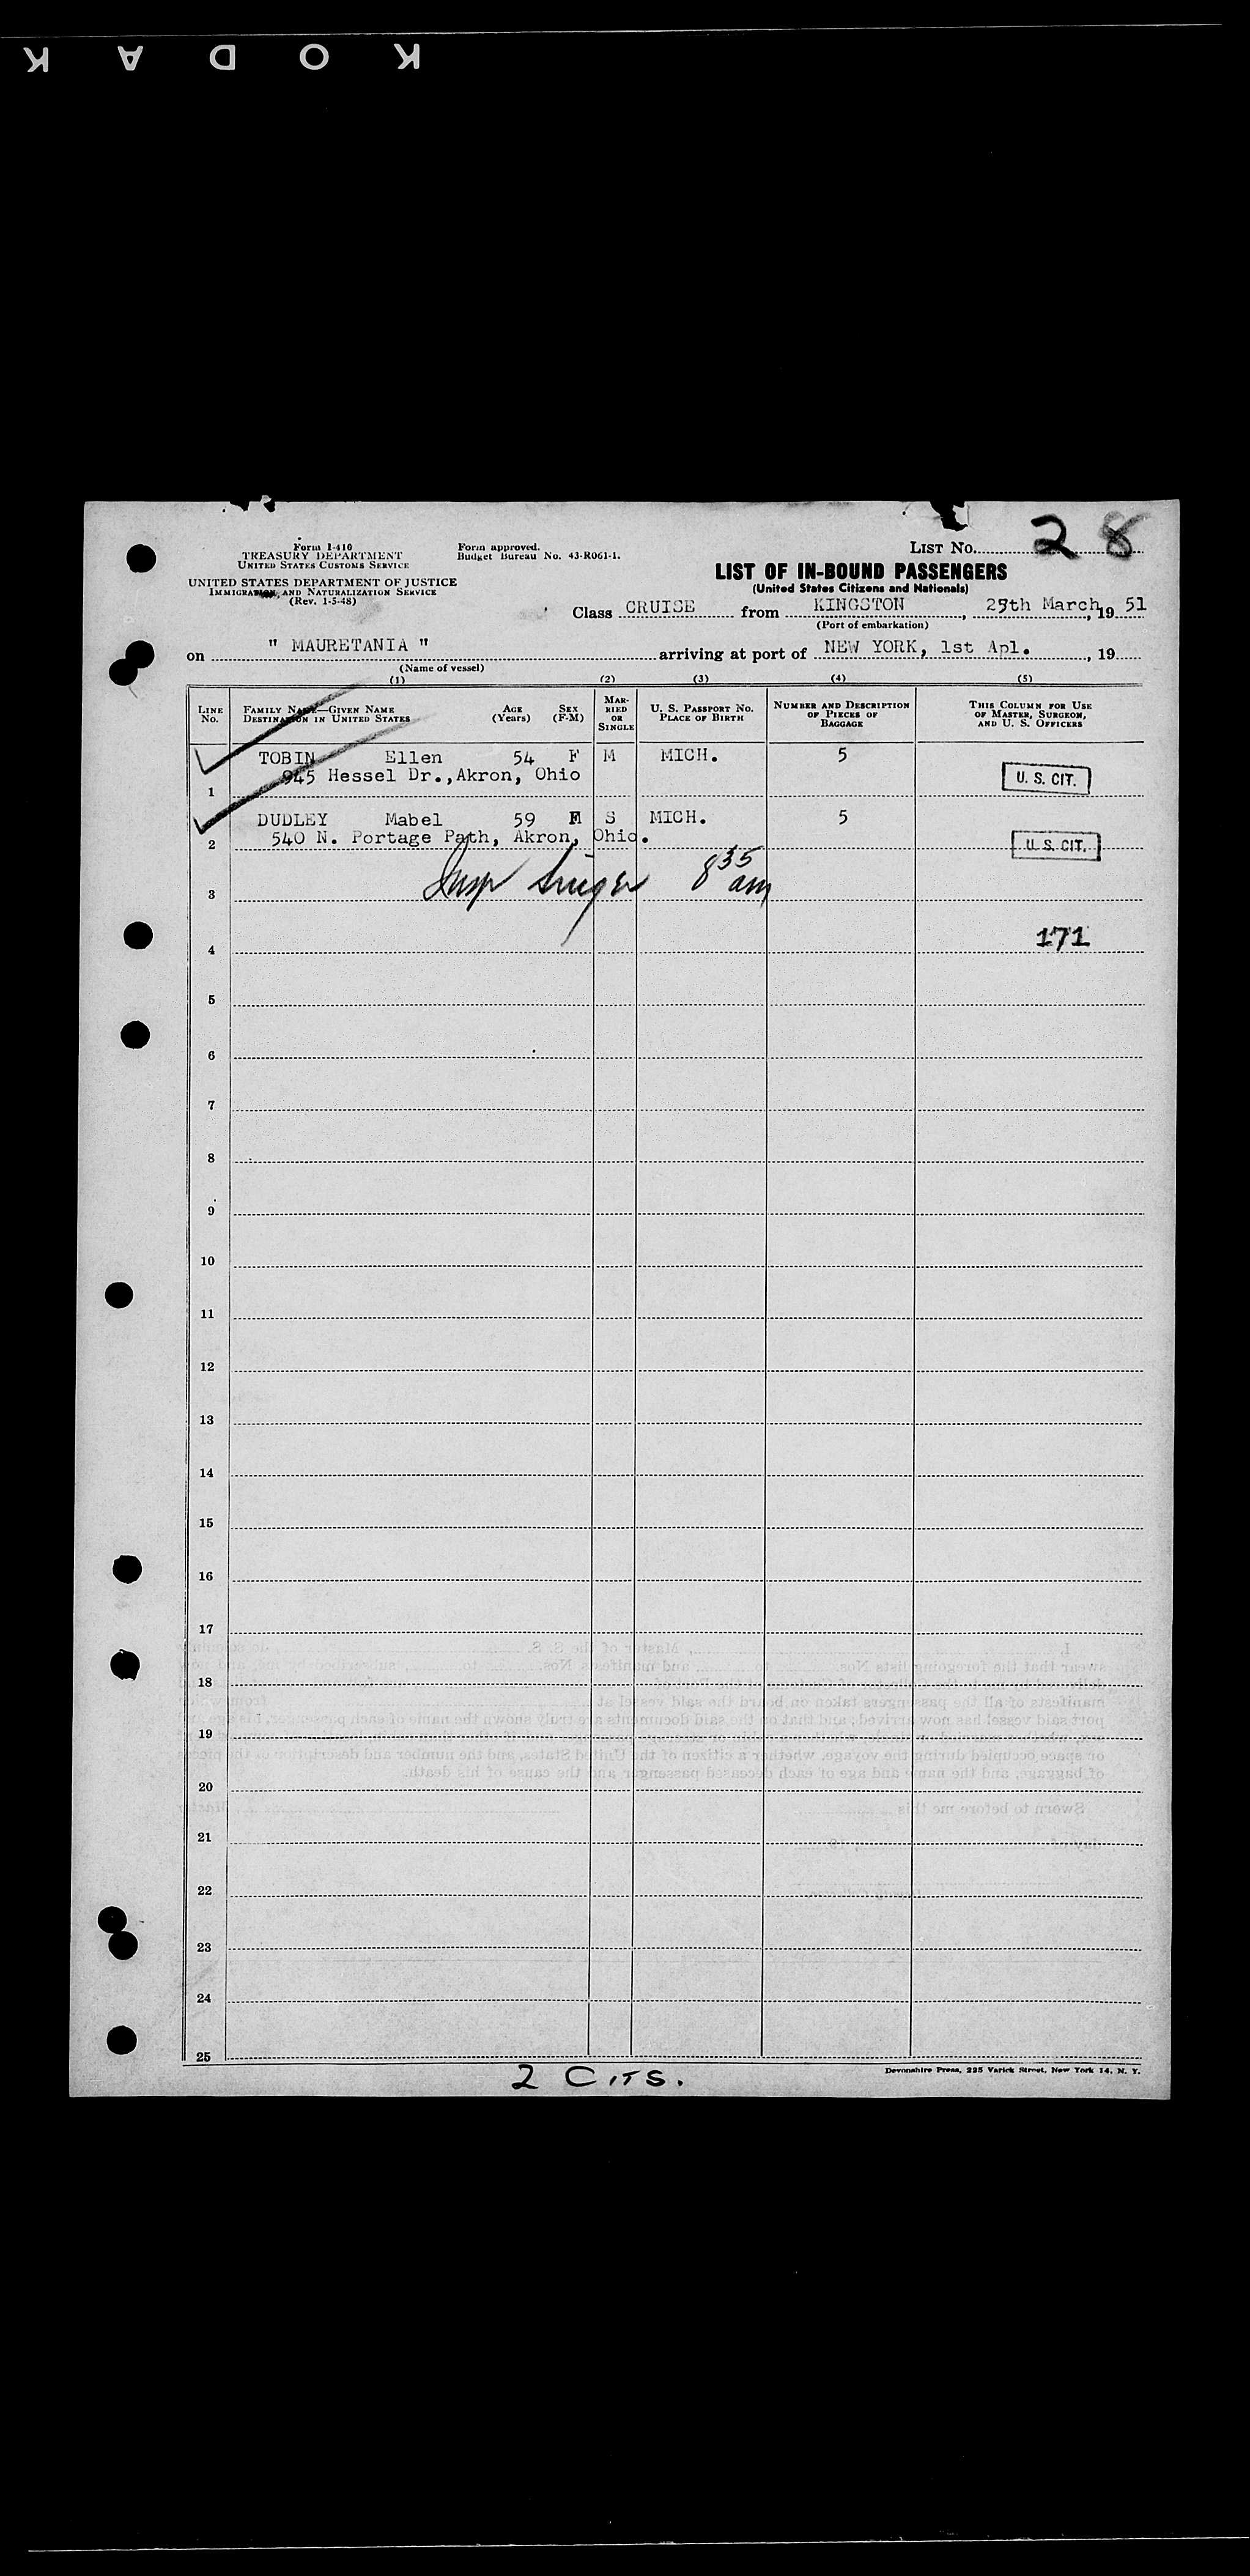 KODAK
Form I-410
TREASURY DEPARTMENT
UNITED STATES CUSTOMS SERVICE
UNITED STATES DEPARTMENT OF JUSTICE
IMMIGRATION AND NATURALIZATION SERVICE
(Rev. 1-5-48)
Form approved.
Budget Bureau No. 43-R061-1.
LIST No. 28
LIST OF IN-BOUND PASSENGERS
(United States Citizens and Nationals)
Class CRUISE from KINGSTON, March, 19 51
(Port of embarkation)
on " MAURETANIA " arriving at port of NEW YORK, 1st Apl. , 19
(Name of vessel)
(1) (2) (3) (4) (5)
LINE No.
FAMILY NAME—GIVEN NAME
DESTINATION IN UNITED STATES
AGE (Years)
SEX (F-M)
MARRIED OR SINGLE
U. S. PASSPORT NO.
PLACE OF BIRTH
NUMBER AND DESCRIPTION OF PIECES OF BAGGAGE
THIS COLUMN FOR USE OF MASTER, SURGEON, AND U. S. OFFICERS
TOBIN Ellen 54 F M MICH. 5
945 Hessel Dr.,Akron, Ohio
1 U. S. CIT.
DUDLEY Mabel 59 F S MICH. 5
540 N. Portage Path, Akron, Ohio.
2 U. S. CIT.
Insp 8 35 am
3
171
4
5
6
7
8
9
10
11
12
13
14
15
16
17
18
19
20
21
22
23
24
25
2 CITS.
Devonshire Press, 225 Varick Street, New York 14, N. Y.